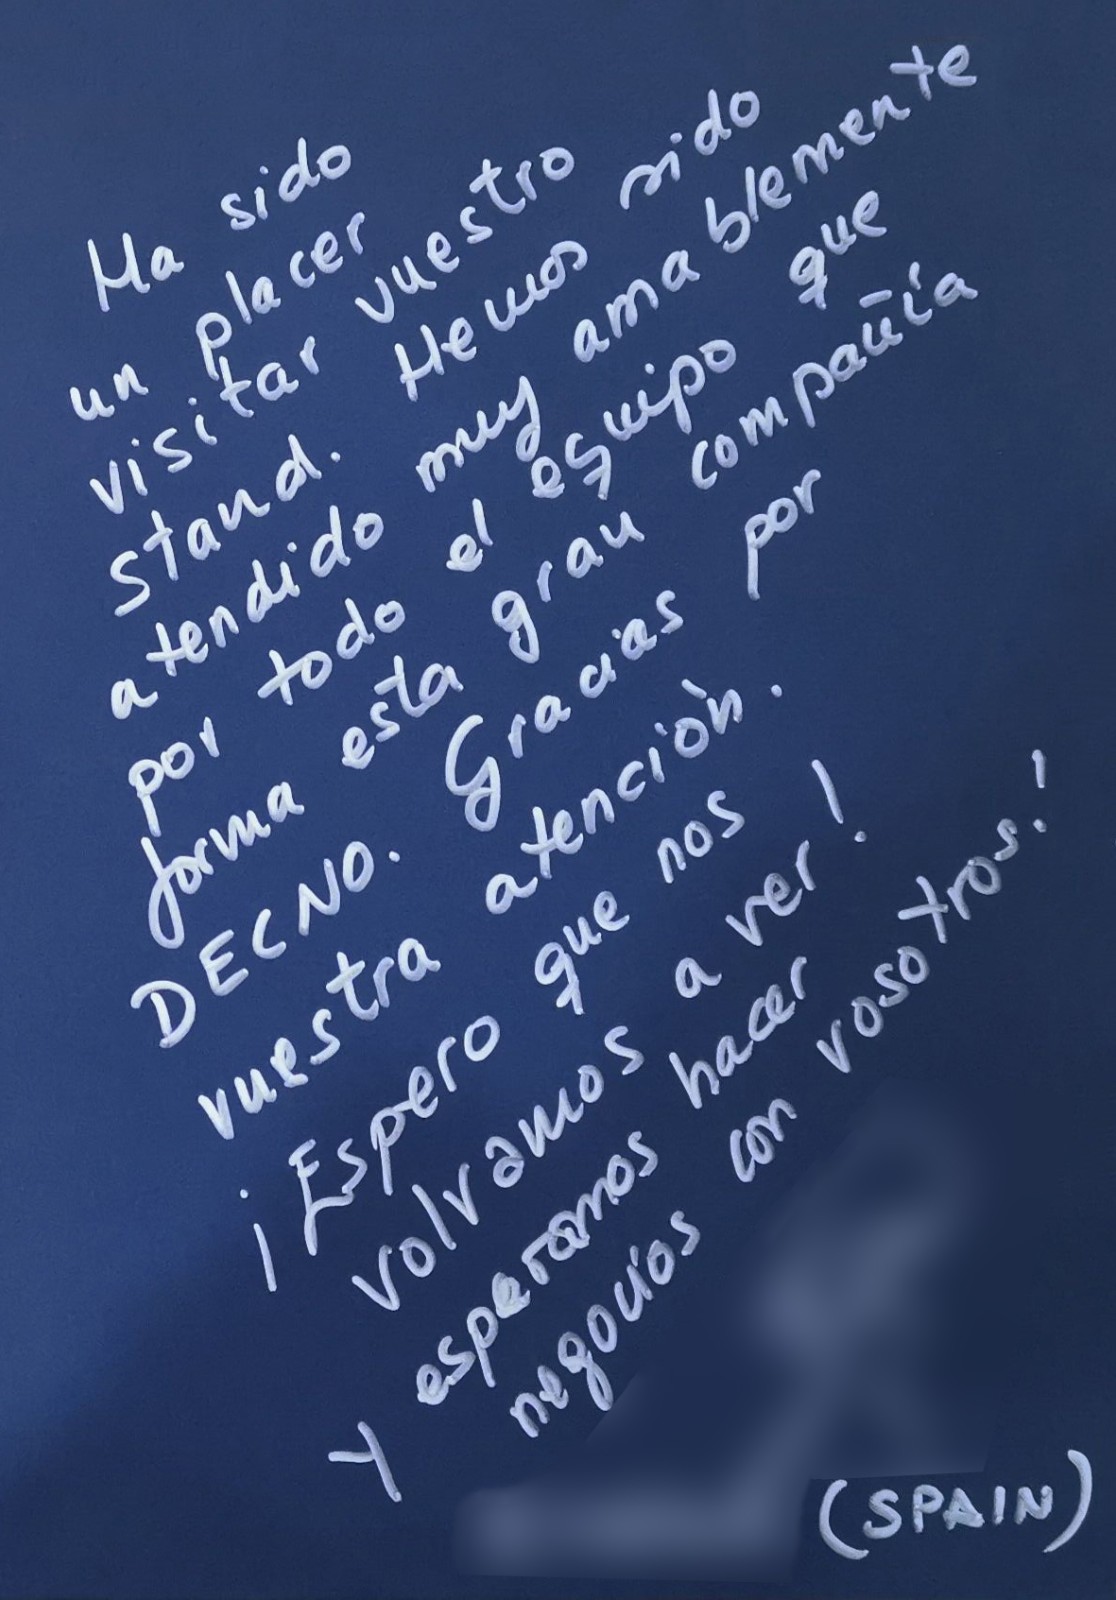 Ha sido
un placer
visitar vuestro
stand. Hemos sido
atendido muy amablemente
por todo el equipo que
forma esta gran compañía
DECNO. Gracias por
vuestra atención.
¡Espero que nos
volvamos a ver!
Y esperamos hacer
negocios con vosotros!
(SPAIN)